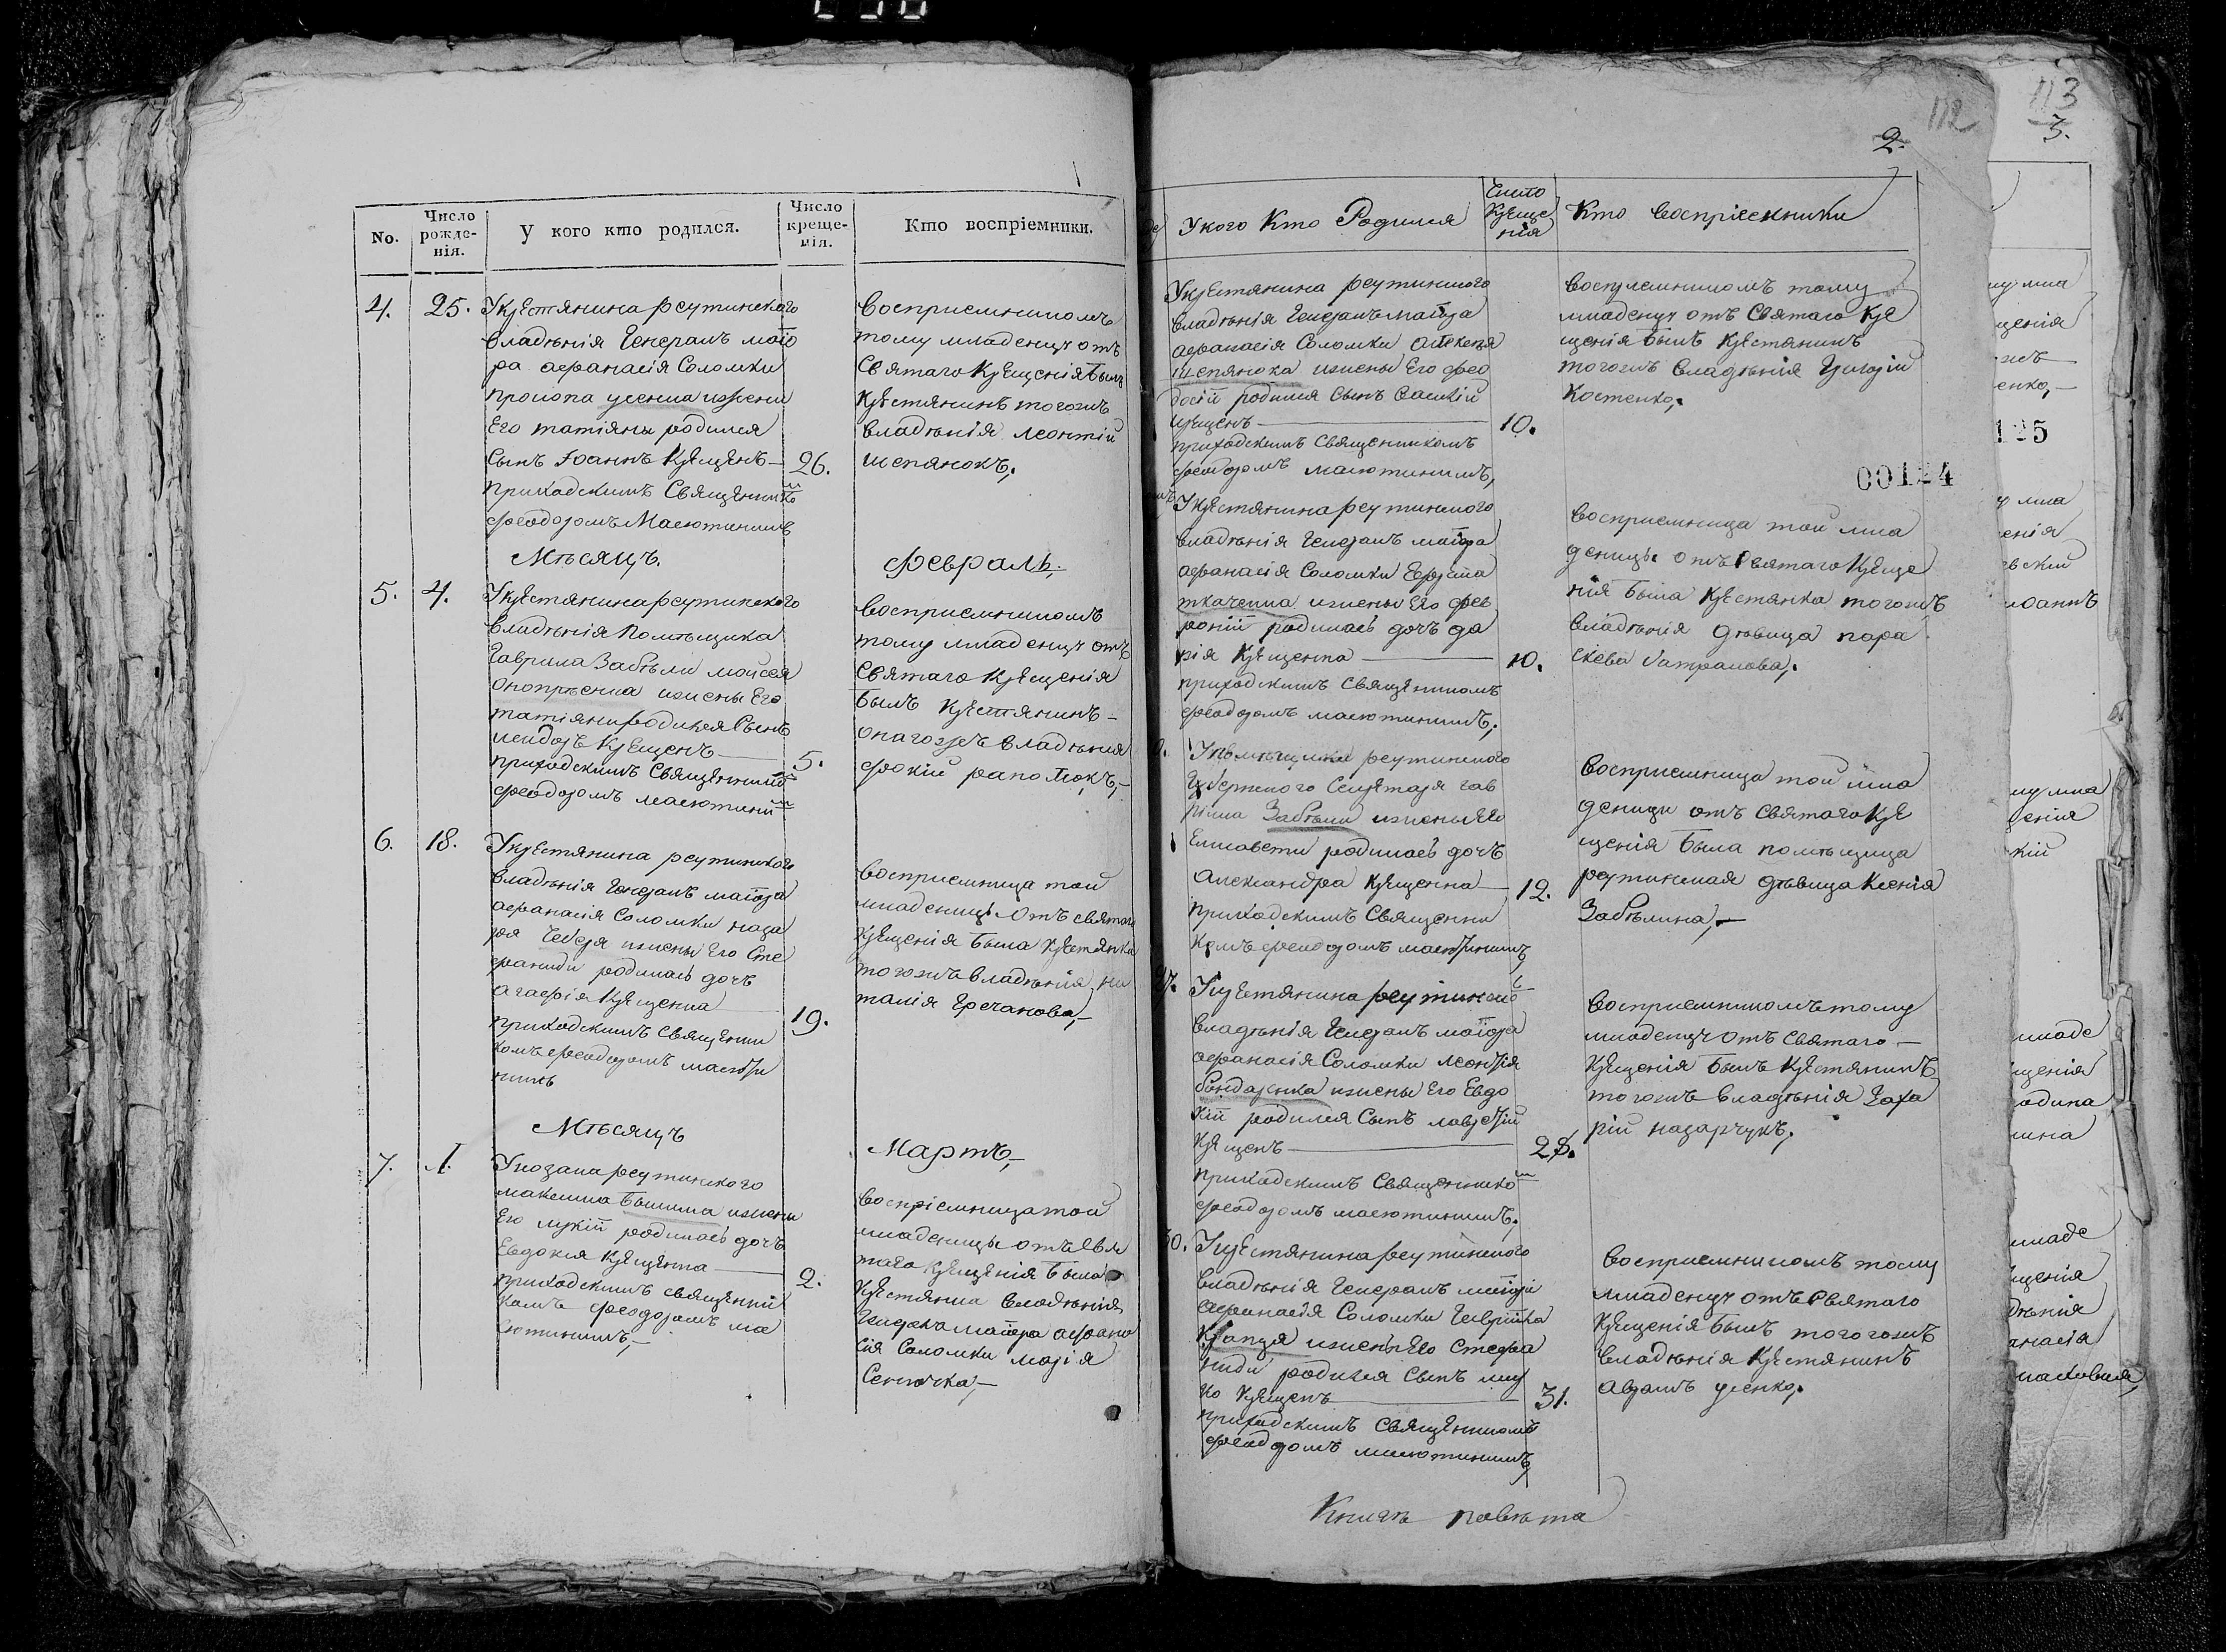 No.
Число рожде-нія.
У кого кто родился.
Число креще-нія.
Кто воспріемники.
4.
25.
Укрестянина реутинского
владѣнія Генералъ маіо
ра афанасія Соломки
прокопа усенка изжены
Его татіяны родился
Сынъ Іоаннъ крещенъ —
26.
приходскимъ Священнико
феодоромъ Масютинимъ
восприемникомъ
тому младенцу отъ
Святаго крещенія былъ
крестянинъ тогожъ
владѣнія леонтій
шепянокъ,
Мѣсяцъ.
февраль,
5.
4.
Укрестянина реутинского
владѣнія Помѣщика
Гаврила Забѣли мойсея
онопрѣенка изжены Его
татіяни родился Сынъ
исидоръ крещенъ —
5.
приходскимъ Священникомъ
феодоромъ масютини
восприемникомъ
тому младенцу отъ
Святаго крещенія
былъ крестянинъ —
онагожъ владѣнія
фокій
6.
18.
Укрестянина реутинского
владѣнія Генералъ маіора
афанасія Соломки наза
ра изжены Его Сте
фаниди родилась дочъ
агафія крещенна
19.
приходскимъ Священни
комъ феодоромъ масюти
нимъ
восприемница той
младеници отъ святаго
крещенія была крестянка
тогожъ владѣнія на
талія Гречанова,—
Мѣсяцъ
Мартъ,
7.
1.
Укозака реутинского
максима изжены
Его лукіи родилась дочъ
Евдокия крещенна —
2.
приходскимъ священни
комъ феодоромъ ма
сютинимъ,—
воспріемница той
младеницы отъ Свя
таго крещенія была
крестянка владѣнія
Генералъ маіора афана
сія Соломки марія
2.
112
113
3.
Укого Кто Родился
Число Креще нія
Кто воспріемники
Укрестянина реутинского
владѣнія Генералъ маіора
афанасія Соломки алексѣя
шепянока изжены Его фео
досіи родился Сынъ василій
крещенъ —
10.
приходскимъ Священникомъ
феодоромъ масютинимъ,
восприемникомъ тому
младенцу отъ Святаго кре
щенія былъ крестянинъ
тогожъ владѣнія Григорій
Костенко,
00124
125
Укрестянина реутинского
владѣнія Генералъ маіора
афанасія Соломки
ткаченка изжены Его фев
роніи родилась дочъ да
рія крещенна —
10.
приходскимъ Священникомъ
феодоромъ масютинимъ,
восприемница той мла
деницы отъ Святаго креще
нія была крестянка тогожъ
владѣнія дѣвица пара
скева
Упомѣщика реутинского
Губернского Секретаря гав
ріила Забѣли изжены Его
Елисавети родилась дочъ
Александра крещенна —
12.
приходскимъ Священни
комъ феодоромъ масютинимъ
восприемница той мла
деници отъ Святаго кре
щенія была помѣщица
реутинская дѣвица Ксенія
Забѣлина,—
27.
Укрестянина реутинско
владѣнія Генералъ маіора
афанасія Соломки леонтія
бондаренка изжены Его Евдо
кіи родился Сынъ лаврентій
крещенъ —
28.
приходскимъ Священнико
феодоромъ масютинимъ,
восприемникомъ тому
младенцу отъ Святаго —
крещенія былъ крестянинъ
тогожъ владѣнія Заха
рій назарчукъ,
30.
Укрестянина реутинского
владѣнія Генералъ маіора
афанасія Соломки Гавріила
изжены Его Стефа
ниди родился Сынъ
крещенъ —
31.
приходскимъ Священникомъ
феодоромъ масютинимъ
восприемникомъ тому
младенцу отъ Святаго
крещенія былъ тогожъ
владѣнія крестянинъ
аврамъ усенко,
повѣта